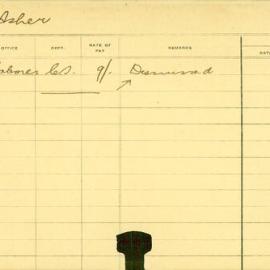 Asher
OFFICE DEPT. RATE OF PAY REMARKS DATE
Laborer C.S. 9/. Dismissed